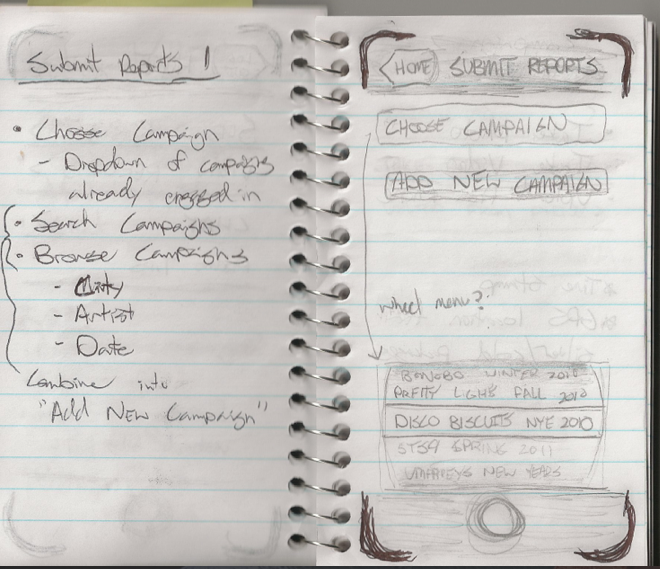 Submit Reports 1
• Choose Campaign
- Dropdown of campaigns
already engaged in
• Search Campaigns
• Browse Campaigns
- City
- Artist
- Date
Combine into
"Add New Campaign"
HOME SUBMIT REPORTS
CHOOSE CAMPAIGN
ADD NEW CAMPAIGN
wheel menu?
BONOBO WINTER 2010
PRETTY LIGHS FALL 2010
DISCO BISCUITS NYE 2010
STS9 SPRING 2011
UMPHREYS NEW YEARS